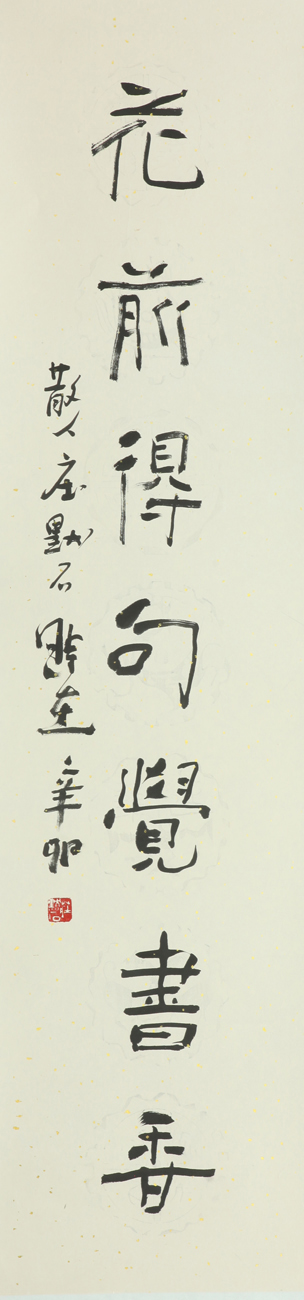 花前得句覺書香
散人庄默石
辛卯